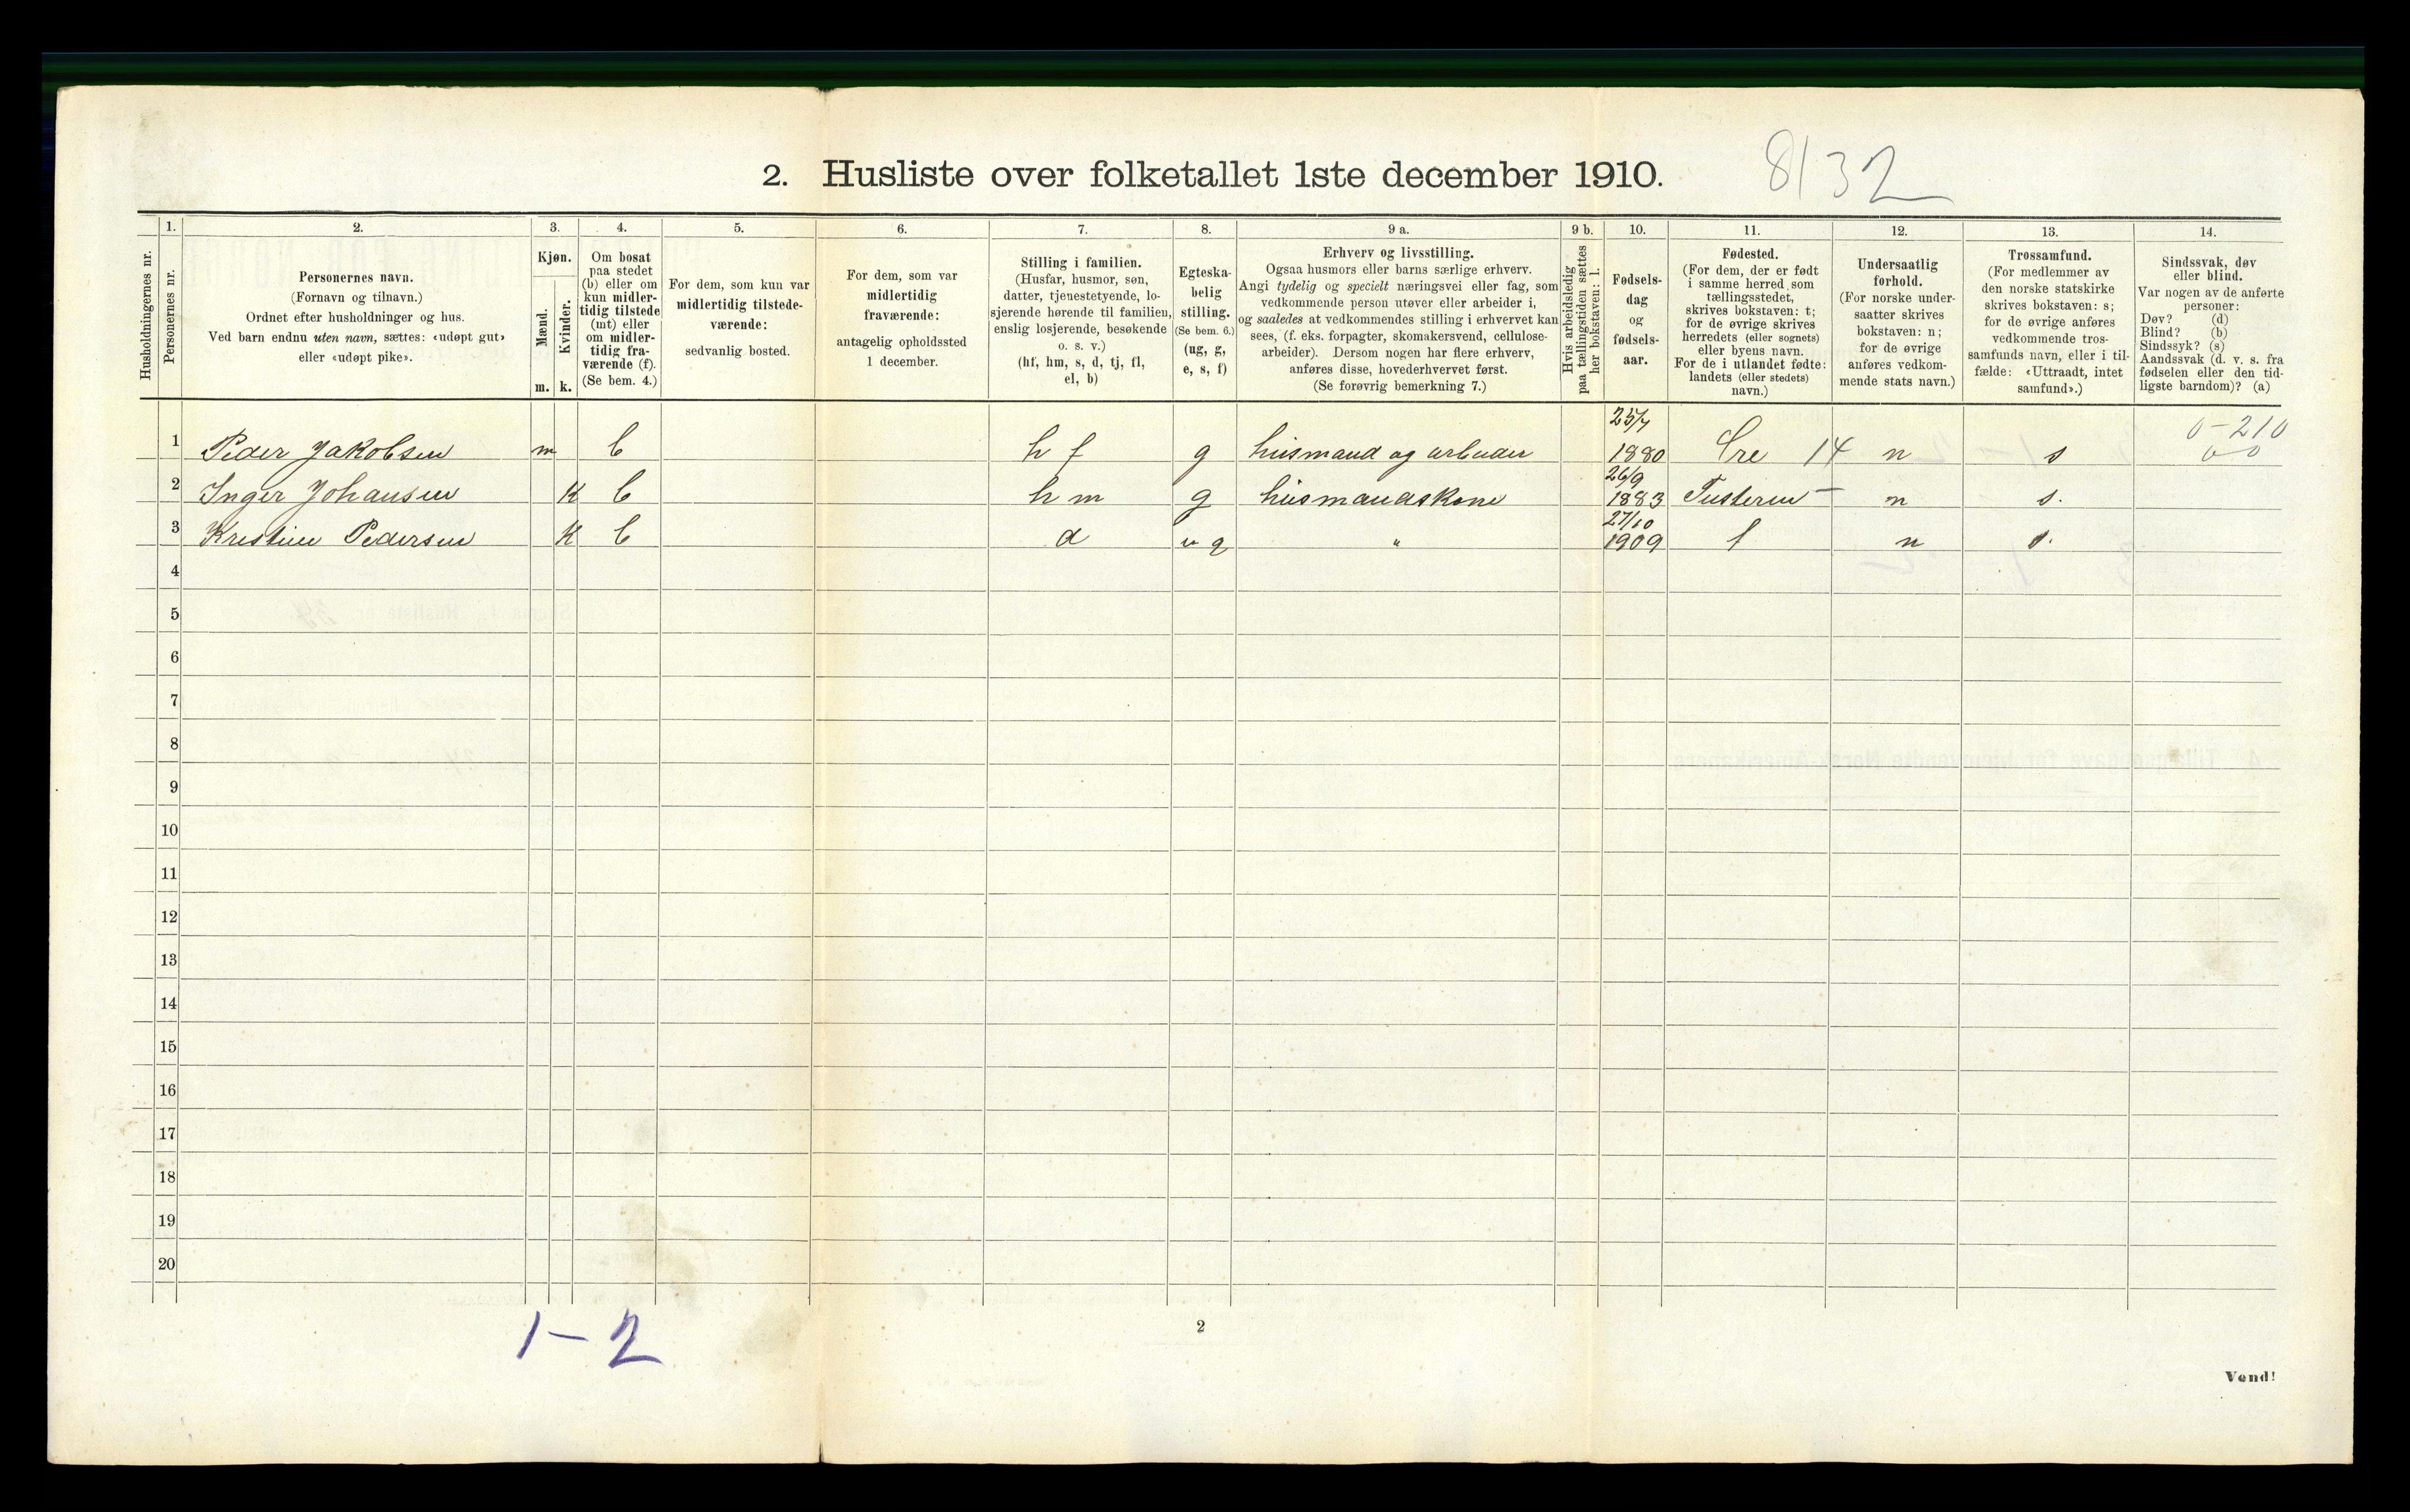 8132
2. Husliste over folketallet 1ste december 1910.
Husholdningernes nr.
1.
Personernes nr.
2.
Personernes navn.
(Fornavn og tilnavn.)
Ordnet efter husholdninger og hus.
Ved barn endnu uten navn, sættes: «udøpt gut»
eller «udøpt pike».
3.
Kjøn.
Mænd.
Kvinder.
m. k.
4.
Om bosat
paa stedet
(b) eller om
kun midler-
tidig tilstede
(mt) eller
om midler-
tidig fra-
værende (f).
(Se bem. 4.)
5.
For dem, som kun var
midlertidig tilstede-
værende:
sedvanlig bosted.
6.
For dem, som var
midlertidig
fraværende:
antagelig opholdssted
1 december.
7.
Stilling i familien.
(Husfar, husmor, søn,
datter, tjenestetyende, lo-
sjerende hørende til familien,
enslig losjerende, besøkende
o. s. v.)
(hf, hm, s, d, tj, fl,
el, b)
8.
Egteska-
belig
stilling.
(Se bem. 6.)
(ug, g,
e, s, f)
9 a.
Erhverv og livsstilling.
Ogsaa husmors eller barns særlige erhverv.
Angi tydelig og specielt næringsvei eller fag, som
vedkommende person utøver eller arbeider i,
og saaledes at vedkommendes stilling i erhvervet kan
sees, (f. eks. forpagter, skomakersvend, cellulose-
arbeider). Dersom nogen har flere erhverv,
anføres disse, hovederhvervet først.
(Se forøvrig bemerkning 7.)
9 b.
Hvis arbeidsledig
paa tællingstiden sættes
her bokstaven: l.
10.
Fødsels-
dag
og
fødsels-
aar.
11.
Fødested.
(For dem, der er født
i samme herred som
tællingsstedet,
skrives bokstaven: t;
for de øvrige skrives
herredets (eller sognets)
eller byens navn.
For de i utlandet fødte:
landets (eller stedets)
navn.)
12.
Undersaatlig
forhold.
(For norske under-
saatter skrives
bokstaven: n;
for de øvrige
anføres vedkom-
mende stats navn.)
13.
Trossamfund.
(For medlemmer av
den norske statskirke
skrives bokstaven: s;
for de øvrige anføres
vedkommende tros-
samfunds navn, eller i til-
fælde: «Uttraadt, intet
samfund».)
14.
Sindssvak, døv
eller blind.
Var nogen av de anførte
personer:
Døv? (d)
Blind? (b)
Sindssyk? (s)
Aandssvak (d. v. s. fra
fødselen eller den tid-
ligste barndom)? (a)
1 Peder Jakobsen m b h f g husmand og arbeider 25/7 1880 14 n s 0-210 0-0
2 Inger Johansen K b h m g husmandskone 26/9 1883 Tusteren - n s.
3 Kristine Pedersen K b d u g " 27/10 1909 t n s.
4
5
6
7
8
9
10
11
12
13
14
15
16
17
18
19
20
1-2
2
Vend!